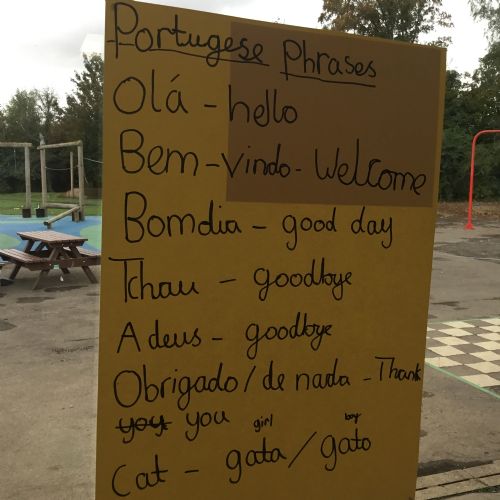 Portugese Phrases
Olá - hello
Bem-vindo - Welcome
Bomdia - good day
Tchau - goodbye
Adeus - goodbye
Obrigado/de nada - Thank
you you
girl boy
Cat - gata/gato